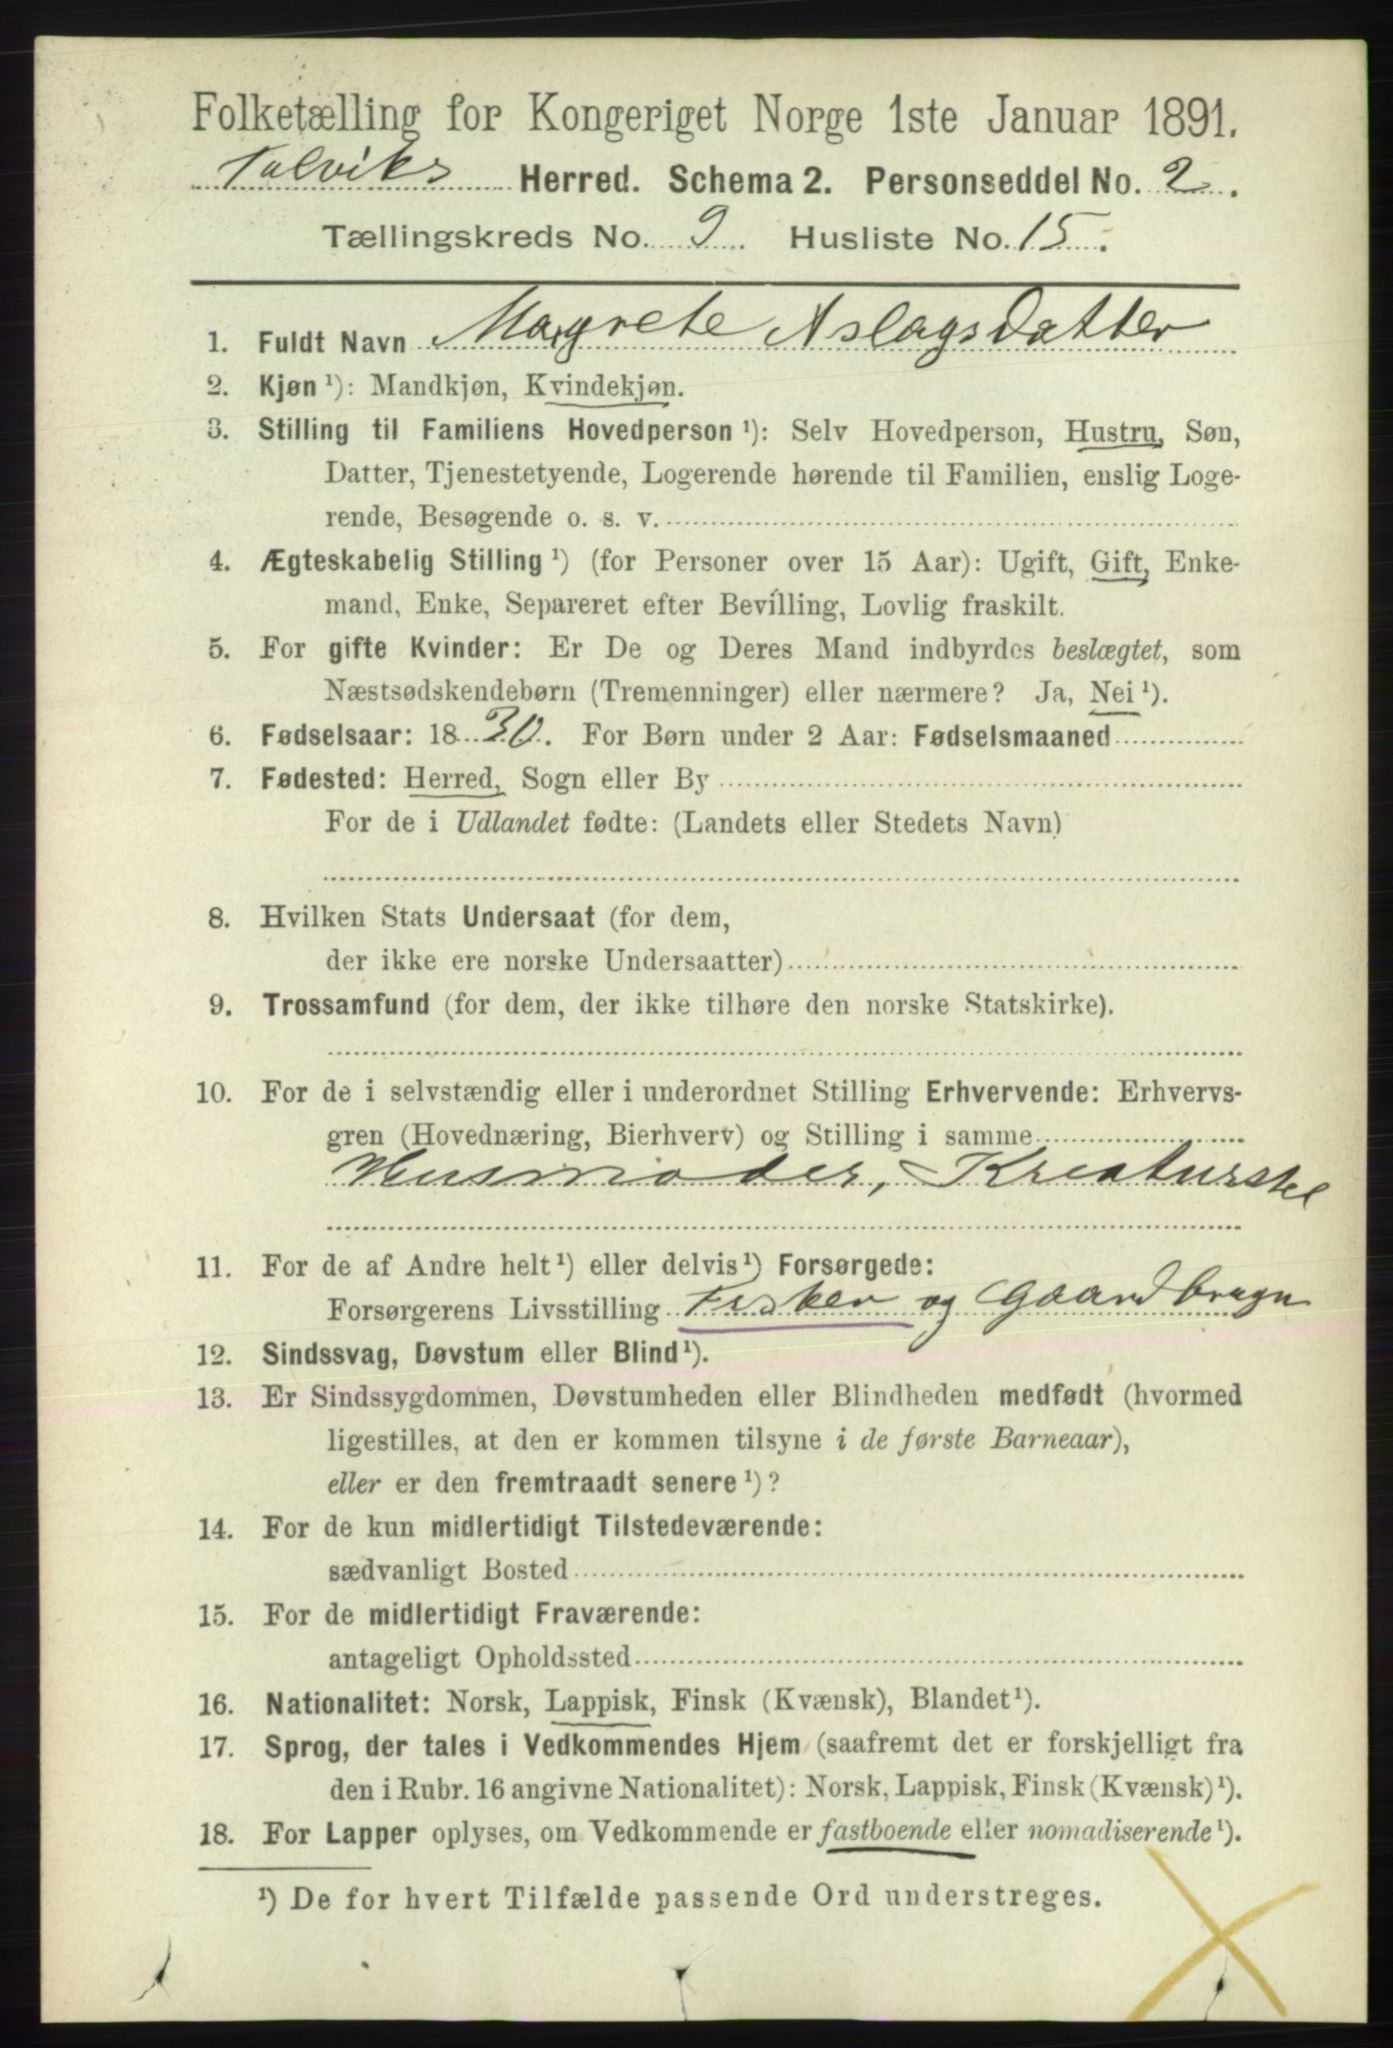 Folketælling for Kongeriget Norge 1ste Januar 1891.
Talviks Herred. Schema 2. Personseddel No. 2.
Tællingskreds No. 9. Husliste No. 15.
1. Fuldt Navn Magrete Aslagsdatter
2. Kjøn ¹): Mandkjøn, Kvindekjøn.
3. Stilling til Familiens Hovedperson ¹): Selv Hovedperson, Hustru, Søn,
Datter, Tjenestetyende, Logerende hørende til Familien, enslig Loge-
rende, Besøgende o. s. v.
4. Ægteskabelig Stilling ¹) (for Personer over 15 Aar): Ugift, Gift, Enke-
mand, Enke, Separeret efter Bevilling, Lovlig fraskilt.
5. For gifte Kvinder: Er De og Deres Mand indbyrdes beslægtet, som
Næstsødskendebørn (Tremenninger) eller nærmere? Ja, Nei ¹).
6. Fødselsaar: 1830. For Børn under 2 Aar: Fødselsmaaned
7. Fødested: Herred, Sogn eller By
For de i Udlandet fødte: (Landets eller Stedets Navn)
8. Hvilken Stats Undersaat (for dem,
der ikke ere norske Undersaatter)
9. Trossamfund (for dem, der ikke tilhøre den norske Statskirke).
10. For de i selvstændig eller i underordnet Stilling Erhvervende: Erhvervs-
gren (Hovednæring, Bierhverv) og Stilling i samme
Husmoder, Kreaturstel
11. For de af Andre helt ¹) eller delvis ¹) Forsørgede:
Forsørgerens Livsstilling Fisker og Gaardbrugn
12. Sindssvag, Døvstum eller Blind ¹).
13. Er Sindssygdommen, Døvstumheden eller Blindheden medfødt (hvormed
ligestilles, at den er kommen tilsyne i de første Barneaar),
eller er den fremtraadt senere ¹)?
14. For de kun midlertidigt Tilstedeværende:
sædvanligt Bosted
15. For de midlertidigt Fraværende:
antageligt Opholdssted
16. Nationalitet: Norsk, Lappisk, Finsk (Kvænsk), Blandet ¹).
17. Sprog, der tales i Vedkommendes Hjem (saafremt det er forskjelligt fra
den i Rubr. 16 angivne Nationalitet): Norsk, Lappisk, Finsk (Kvænsk) ¹).
18. For Lapper oplyses, om Vedkommende er fastboende eller nomadiserende ¹).
¹) De for hvert Tilfælde passende Ord understreges.